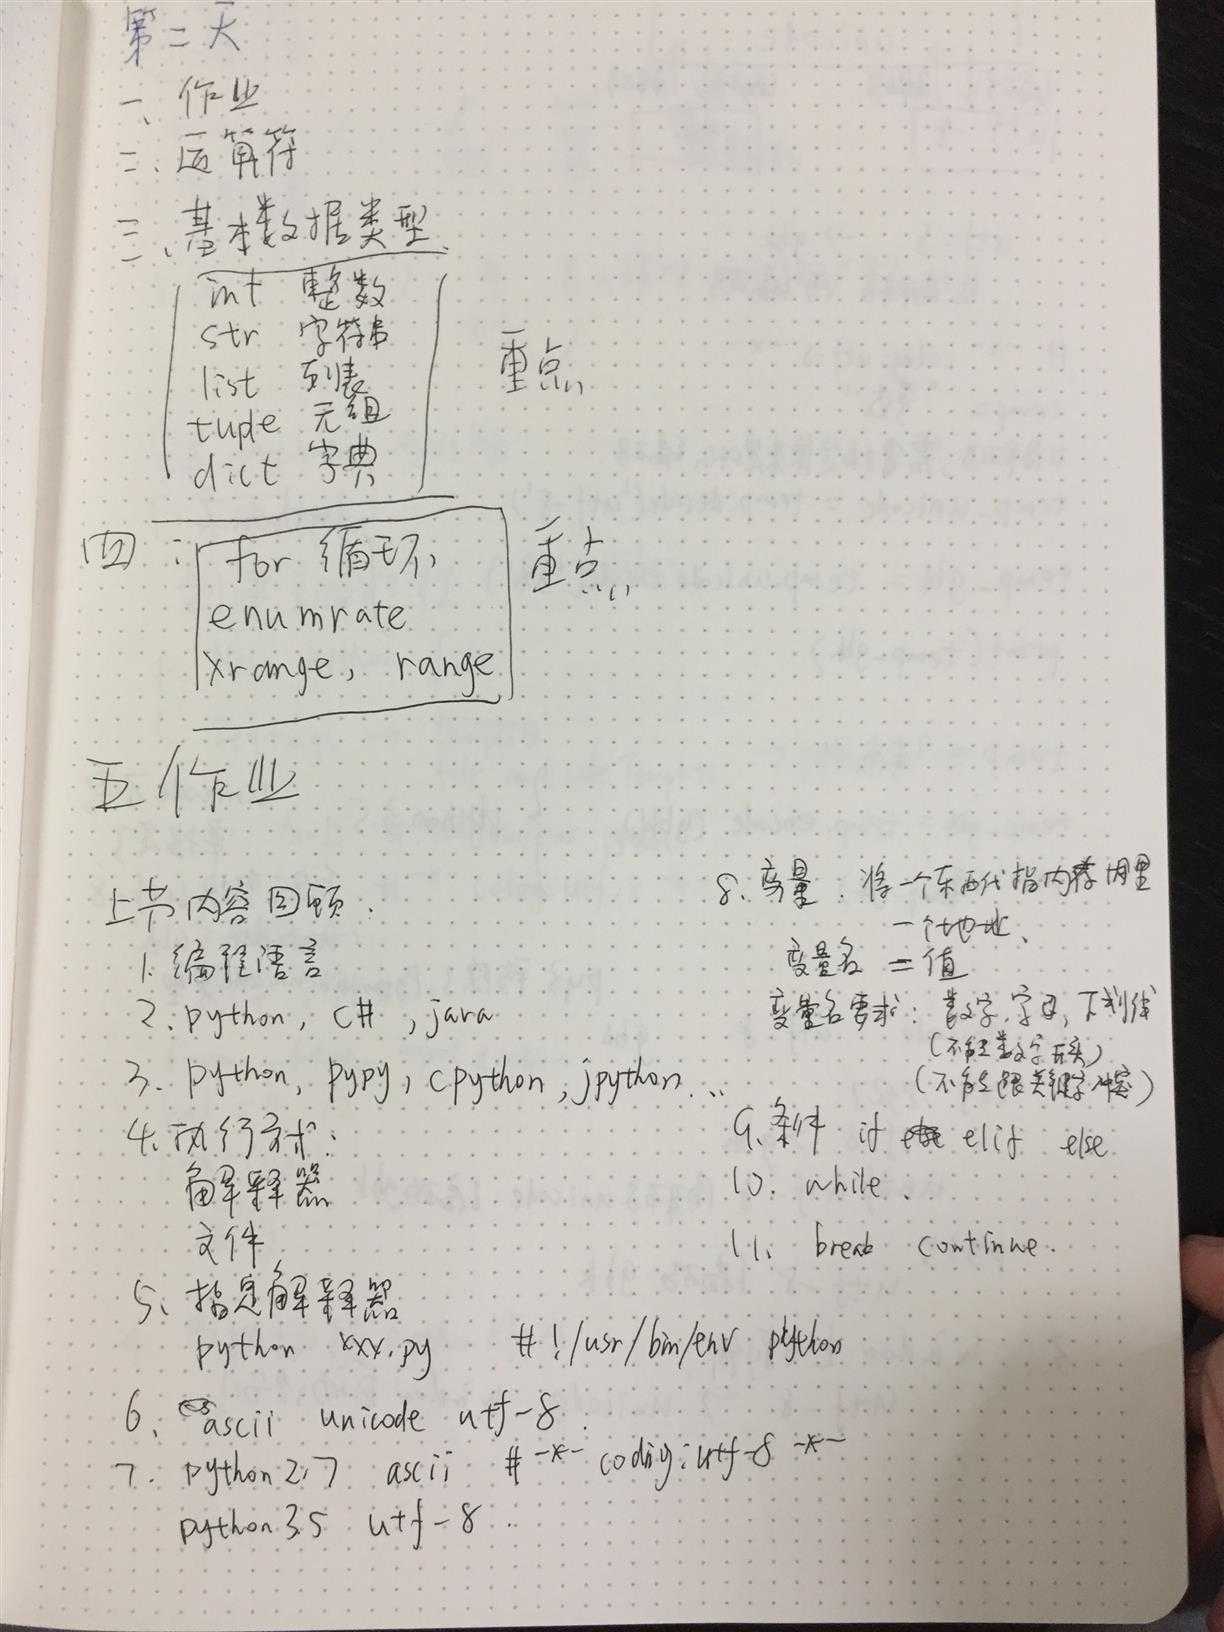 第二天
一、作业
二、运算符
三、基本数据类型
int 整数
str 字符串
list 列表
tuple 元组
dict 字典
重点
四:
for 循环
enumrate
xrange, range
重点
五 作业
上节内容回顾:
1. 编程语言
2. python, c#, java
3. python, pypy, cpython, jpython...
4. 执行方式:
解释器
文件
5、指定解释器
python xxx.py #!/usr/bin/env python
6、ascii unicode utf-8
7. python2.7 ascii # -*- coding:utf-8 -*-
python3.5 utf-8
8. 变量: 将一个东西代指内存里
一个地址、
变量名 = 值
变量名要求: 数字、字母, 下划线
(不能数字开头)
(不能跟关键字冲突)
9、条件 if elif else
10. while.
11. break continue.